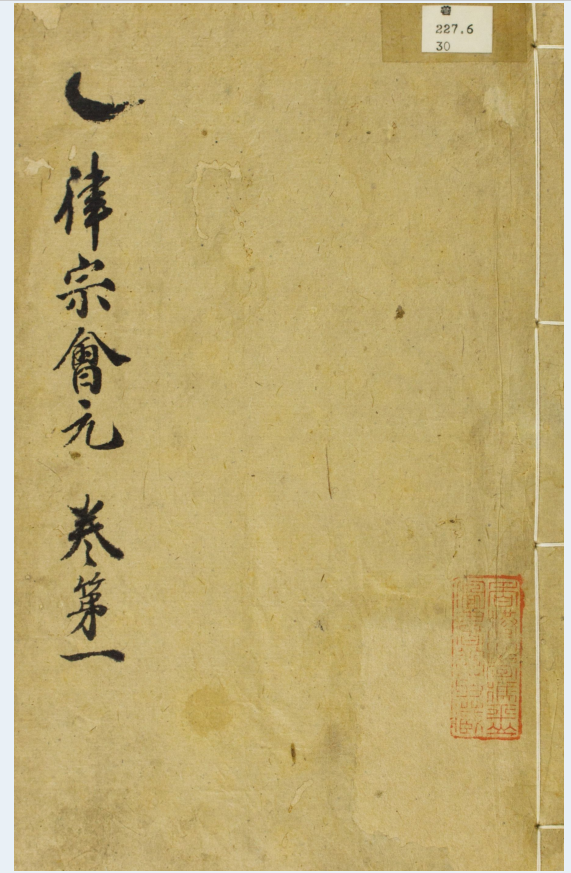 律宗會元 卷第一
227.6
30